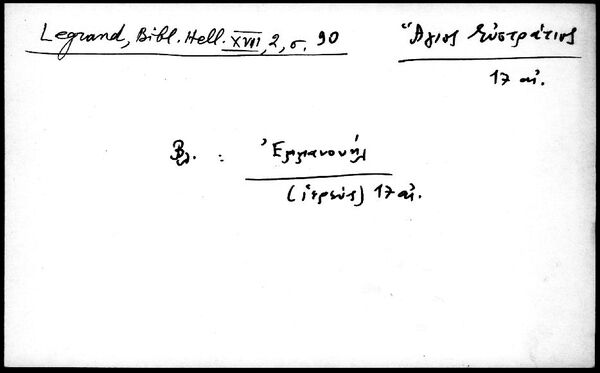 Legrand, Bibl. Hell. XVII, 2, σ. 90
Ἅγιος Εὐστράτιος
17 αἰ.
Βλ. : Ἐμμανουήλ
(ἱερεύς) 17 αἰ.